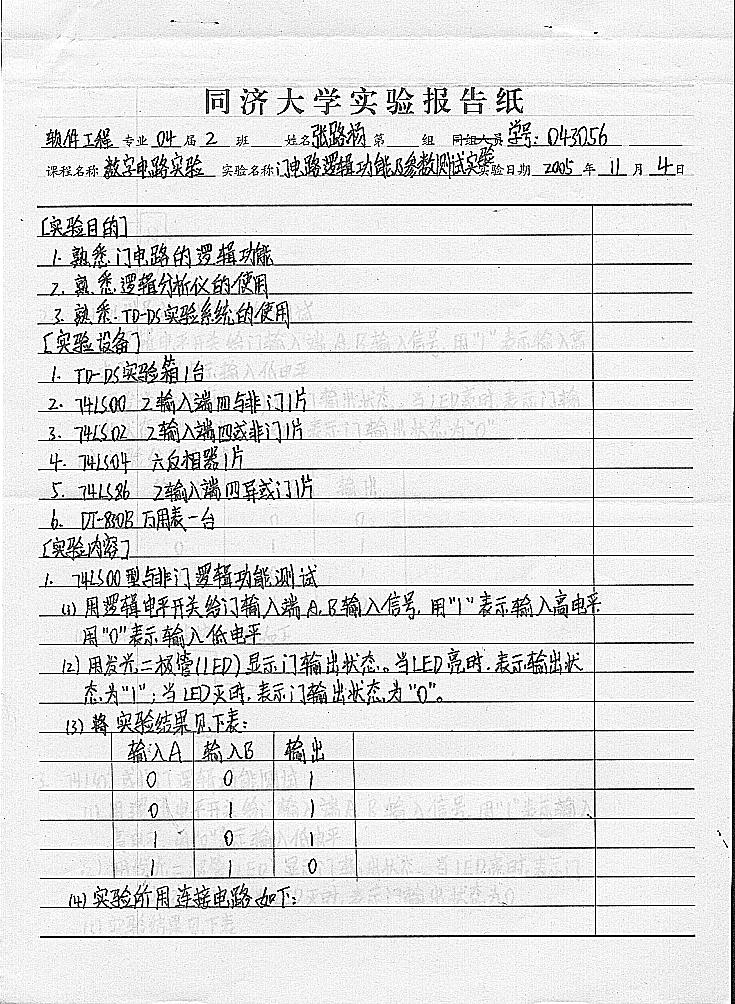 同济大学实验报告纸
软件工程 专业 04 届 2 班 姓名 张路杨 第 组 同组人员 学号: 043056
课程名称 数字电路实验 实验名称 门电路逻辑功能及参数测试实验 实验日期 2005 年 11 月 4 日
[实验目的]
1. 熟悉门电路的逻辑功能
2. 熟悉逻辑分析仪的使用
3. 熟悉TD-DS实验系统的使用
[实验设备]
1. TD-DS实验箱1台
2. 74LS00 2输入端四与非门1片
3. 74LS02 2输入端四或非门1片
4. 74LS04 六反相器1片
5. 74LS86 2输入端四异或门1片
6. DT-830B 万用表一台
[实验内容]
1. 74LS00型与非门逻辑功能测试
(1) 用逻辑电平开关给门输入端A.B输入信号. 用"1"表示输入高电平
用"0"表示输入低电平
(2) 用发光二极管(LED)显示门输出状态。当LED亮时.表示输出状
态为"1"; 当LED灭时.表示门输出状态为"0"。
(3) 将实验结果见下表:
输入A 输入B 输出
0 0 1
0 1 1
1 0 1
1 1 0
(4) 实验所用连接电路如下: